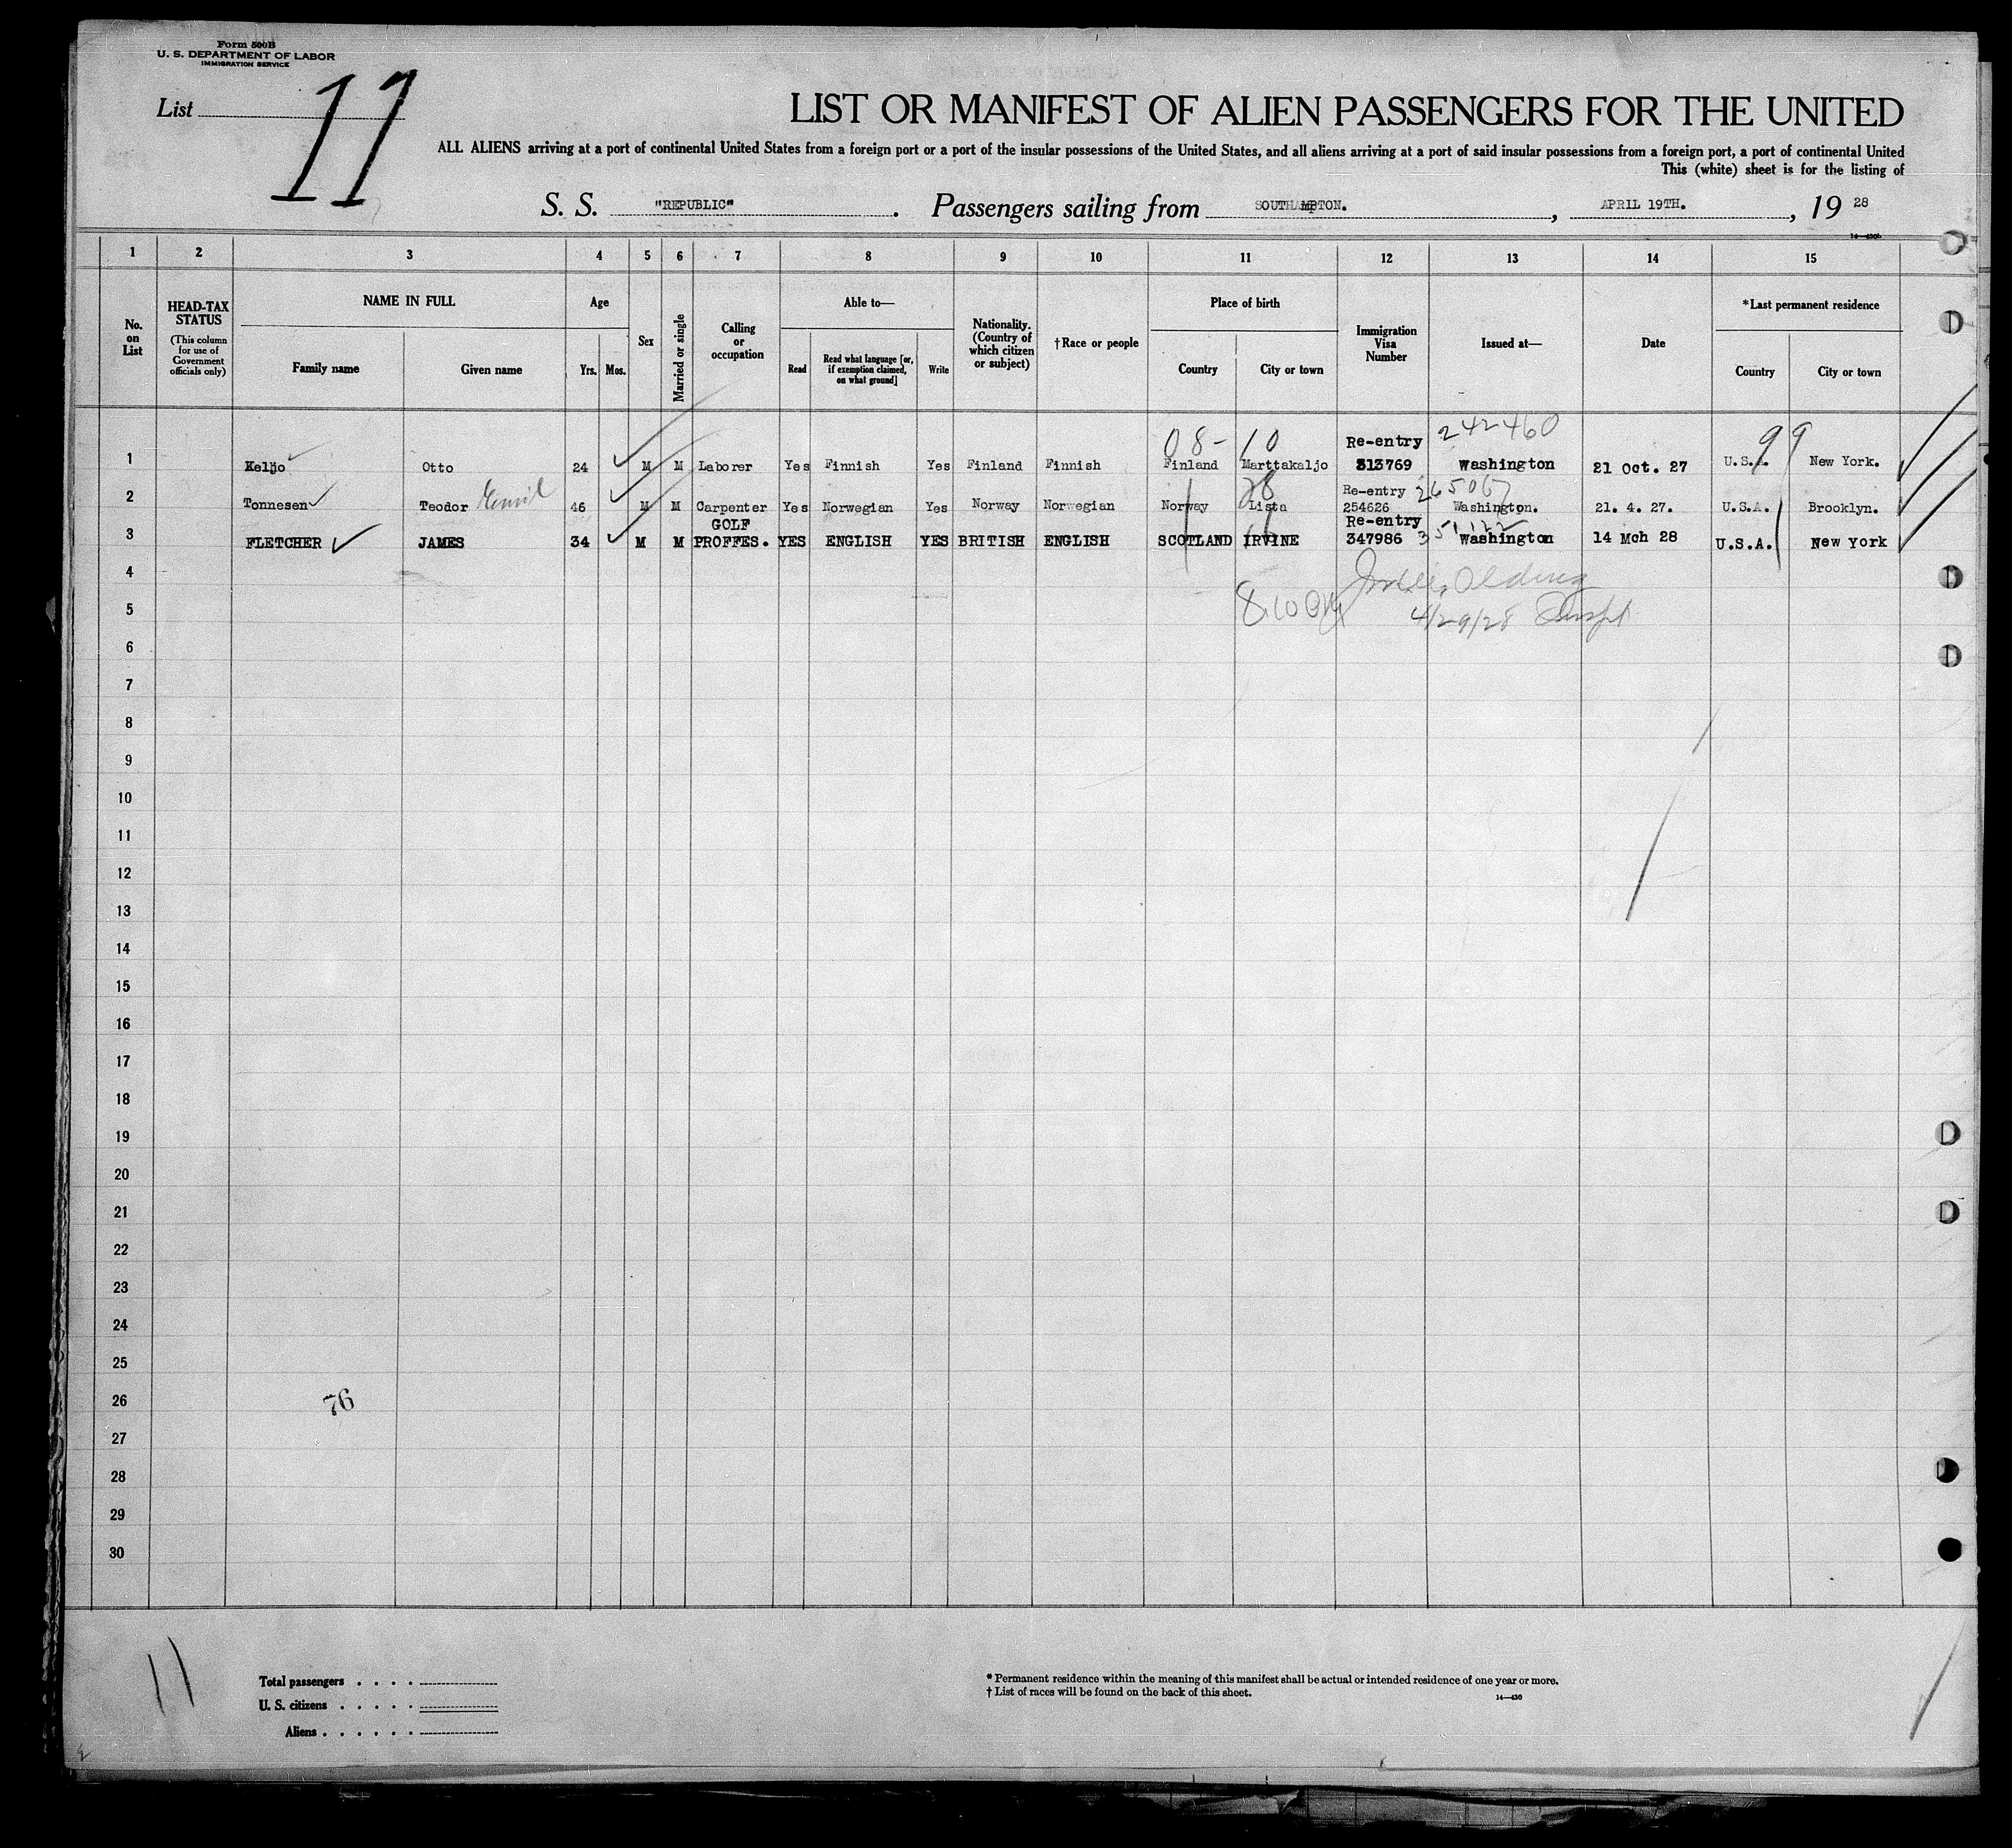 Form 500B
U. S. DEPARTMENT OF LABOR
IMMIGRATION SERVICE
List 11
LIST OR MANIFEST OF ALIEN PASSENGERS FOR THE UNITED
ALL ALIENS arriving at a port of continental United States from a foreign port or a port of the insular possessions of the United States, and all aliens arriving at a port of said insular possessions from a foreign port, a port of continental United
This (white) sheet is for the listing of
S. S. "REPUBLIC" . Passengers sailing from SOUTHAMPTON. , APRIL 19TH. , 19 28
1 2 3 4 5 6 7 8 9 10 11 12 13 14 15
No. on List
HEAD-TAX STATUS
(This column for use of Government officials only)
NAME IN FULL
Family name Given name
Age
Yrs. Mos.
Sex
Married or single
Calling or occupation
Able to—
Read
Read what language [or, if exemption claimed, on what ground]
Write
Nationality. (Country of which citizen or subject)
†Race or people
Place of birth
Country City or town
Immigration Visa Number
Issued at—
Date
*Last permanent residence
Country City or town
08-10 Re-entry 242460 99
1 Keljo Otto 24 M M Laborer Yes Finnish Yes Finland Finnish Finland Marttakaljo 313769 Washington 21 Oct. 27 U.S.A. New York.
28 Re-entry 265067
2 Tonnesen Teodor Emil 46 M M Carpenter Yes Norwegian Yes Norway Norwegian Norway Lista 254626 Washington. 21. 4. 27. U.S.A. Brooklyn.
GOLF Re-entry
3 FLETCHER JAMES 34 M M PROFFES. YES ENGLISH YES BRITISH ENGLISH SCOTLAND IRVINE 347986 Washington 14 Mch 28 U.S.A. New York
4
5 4/29/28
6
7
8
9
10
11
12
13
14
15
16
17
18
19
20
21
22
23
24
25
26 76
27
28
29
30
11
Total passengers . . . .
U. S. citizens . . . . .
Aliens . . . . . .
* Permanent residence within the meaning of this manifest shall be actual or intended residence of one year or more.
† List of races will be found on the back of this sheet.
14—430